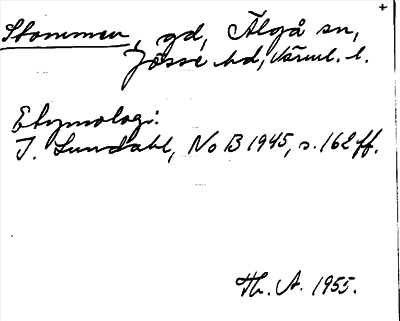 Stommen, gd, Älgå sn,
Jösse hd, Värml. l.
Etymologi:
I. Lundahl, NoB 1945, s. 162 ff.
Th. A. 1955.